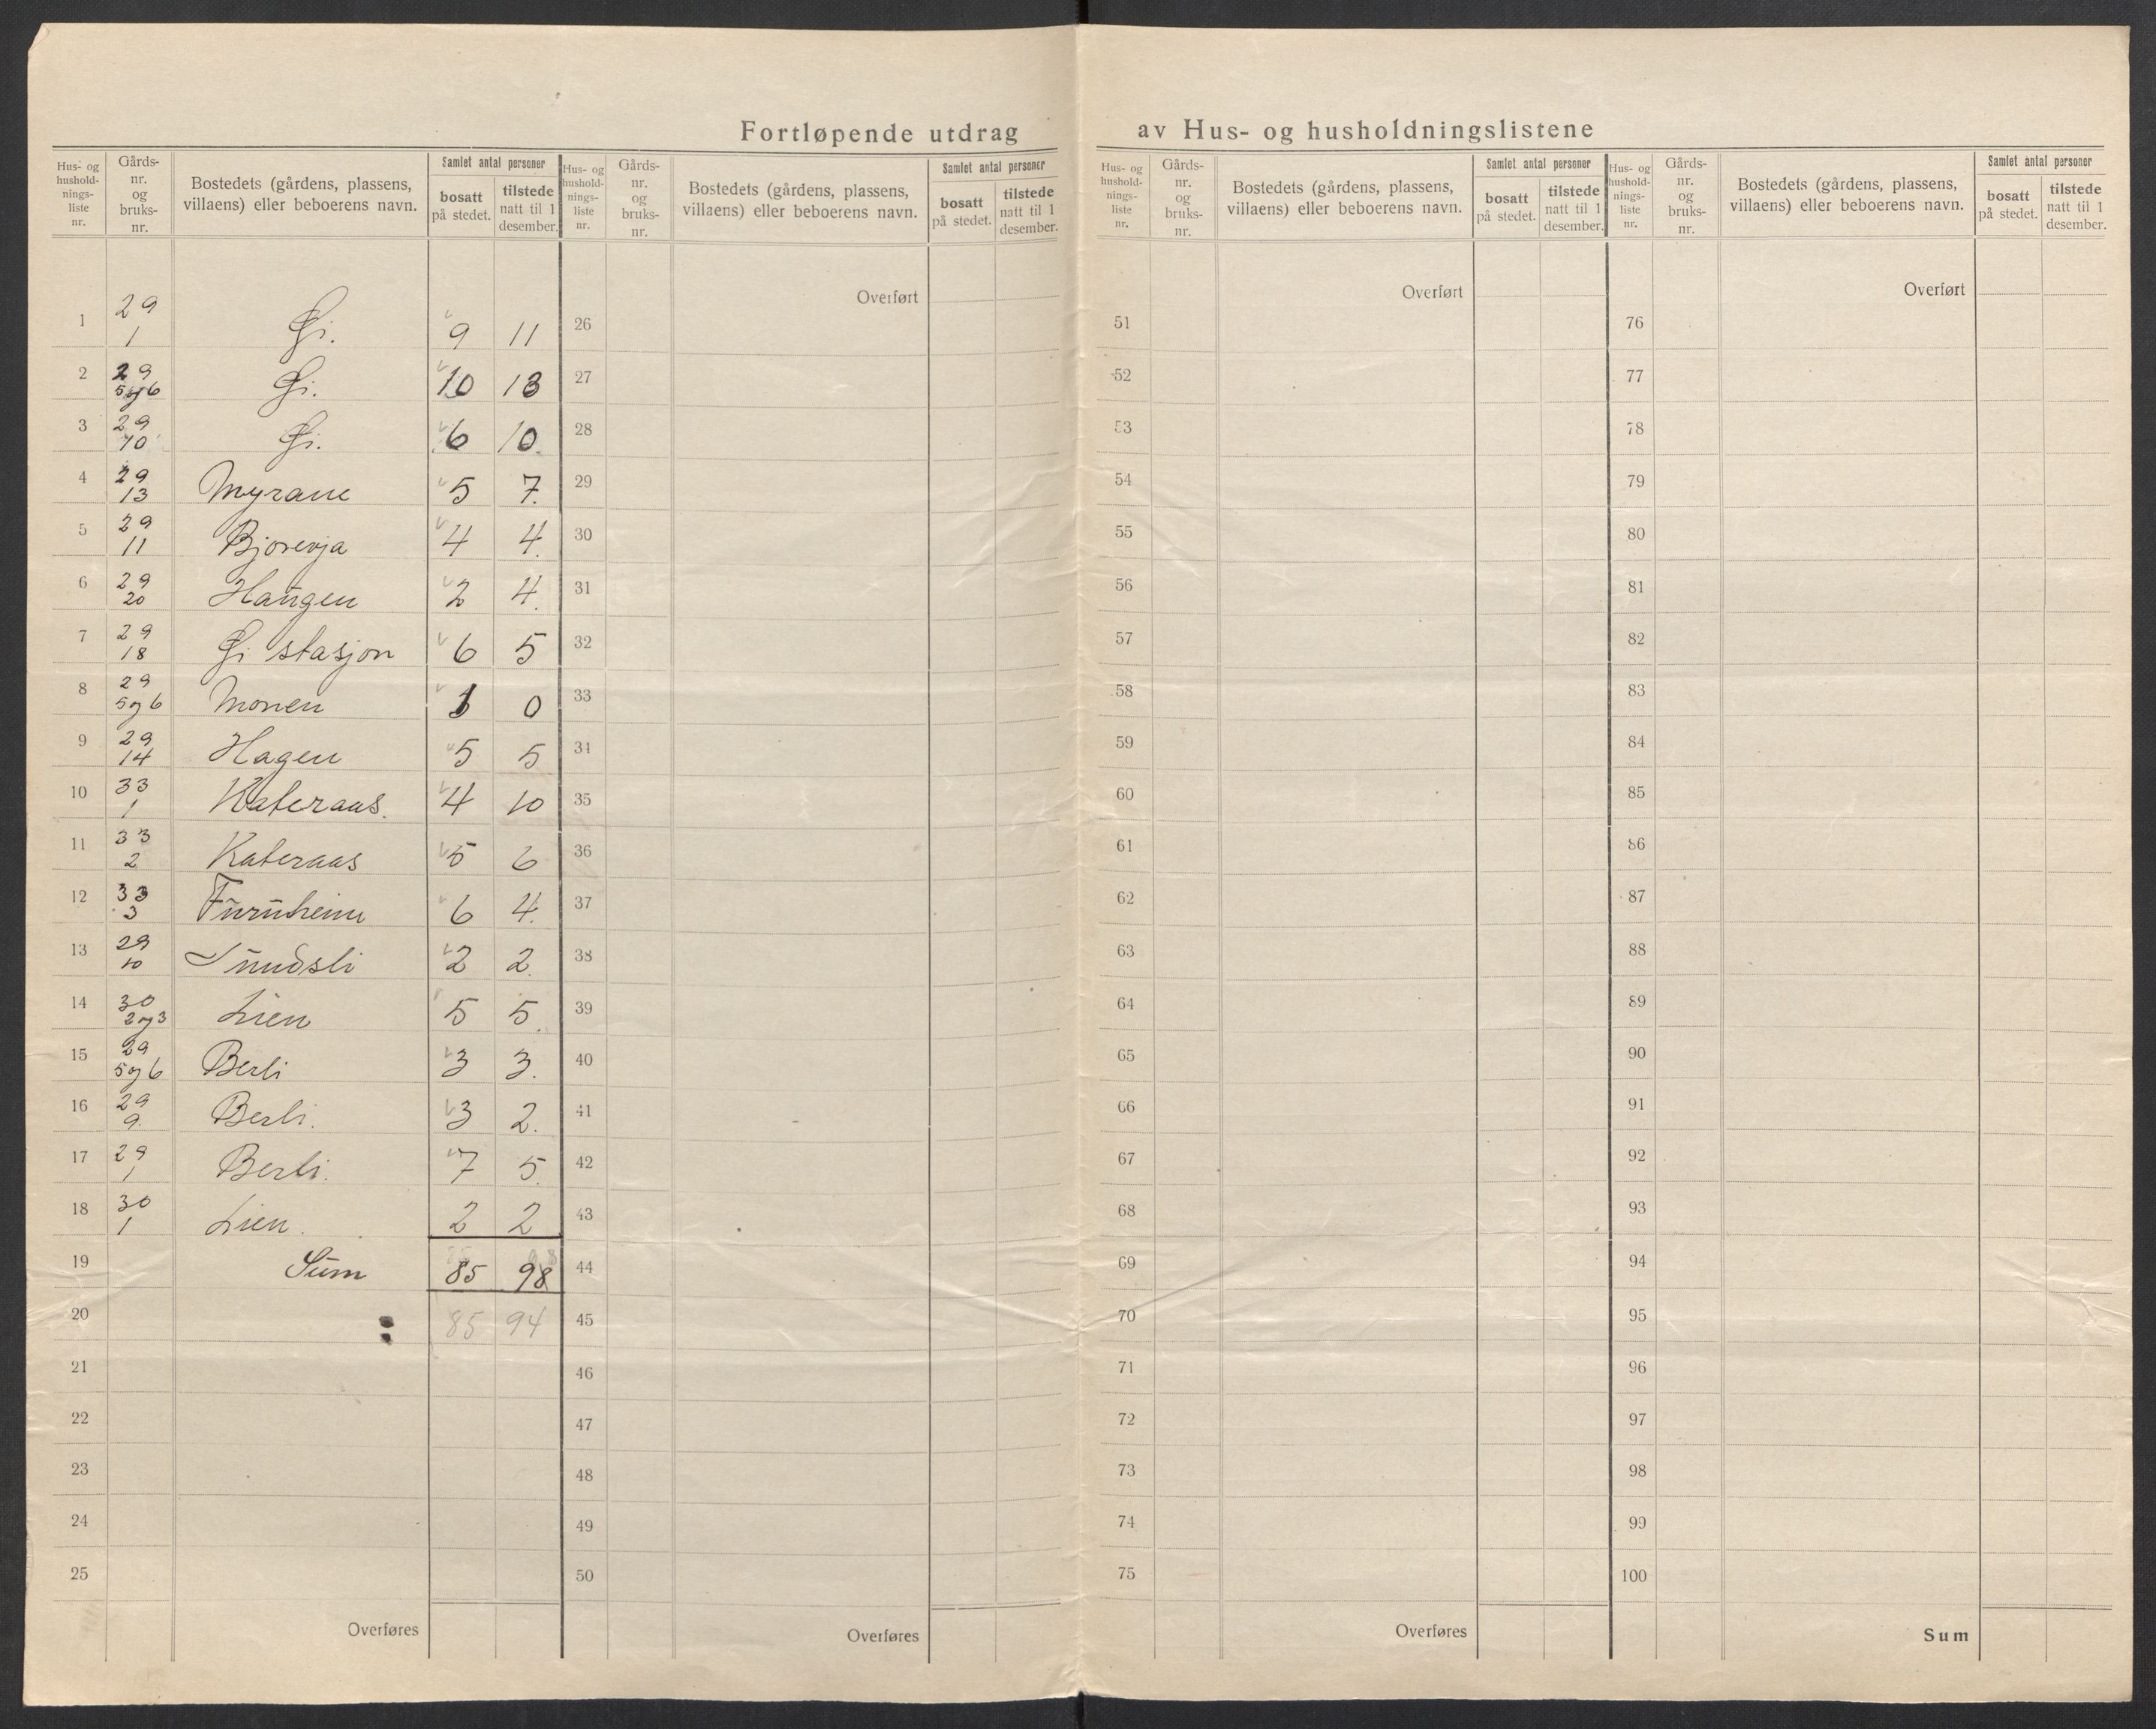 Fortløpende utdrag av Hus- og husholdningslistene
Hus- og husholdnings-liste nr. | Gårds-nr. og bruks-nr. | Bostedets (gårdens, plassens, villaens) eller beboerens navn. | Samlet antal personer | bosatt på stedet. | tilstede natt til 1 desember.
1 | 29 1 | Øi. | 9 | 11
2 | 29 5 og 6 | Øi. | 10 | 13
3 | 29 10 | Øi. | 6 | 10.
4 | 29 13 | Myrane | 5 | 7.
5 | 29 11 | Bjorevja | 4 | 4.
6 | 29 20 | Haugen | 2 | 4.
7 | 29 18 | Øi stasjon | 6 | 5
8 | 29 5 og 6 | Monen | 1 | 0
9 | 29 14 | Hagen | 5 | 5
10 | 33 1 | Kateraas. | 4 | 10
11 | 33 2 | Kateraas | 5 | 6
12 | 33 3 | Furuheim | 6 | 4.
13 | 29 10 | Sundsli | 2 | 2.
14 | 30 2 og 3 | Lien | 5 | 5.
15 | 29 5 og 6 | Berli | 3 | 3.
16 | 29 9. | Berli. | 3 | 2.
17 | 29 1 | Berli. | 7 | 5.
18 | 30 1 | Lien. | 2 | 2
19 | Sum | 85 | 98
20 | 85 | 94
21
22
23
24
25
Overføres
Hus- og husholdnings-liste nr. | Gårds-nr. og bruks-nr. | Bostedets (gårdens, plassens, villaens) eller beboerens navn. | Samlet antal personer | bosatt på stedet. | tilstede natt til 1 desember.
Overført
26
27
28
29
30
31
32
33
34
35
36
37
38
39
40
41
42
43
44
45
46
47
48
49
50
Overføres
Hus- og husholdnings-liste nr. | Gårds-nr. og bruks-nr. | Bostedets (gårdens, plassens, villaens) eller beboerens navn. | Samlet antal personer | bosatt på stedet. | tilstede natt til 1 desember.
Overført
51
52
53
54
55
56
57
58
59
60
61
62
63
64
65
66
67
68
69
70
71
72
73
74
75
Overføres
Hus- og husholdnings-liste nr. | Gårds-nr. og bruks-nr. | Bostedets (gårdens, plassens, villaens) eller beboerens navn. | Samlet antal personer | bosatt på stedet. | tilstede natt til 1 desember.
Overført
76
77
78
79
80
81
82
83
84
85
86
87
88
89
90
91
92
93
94
95
96
97
98
99
100
Sum